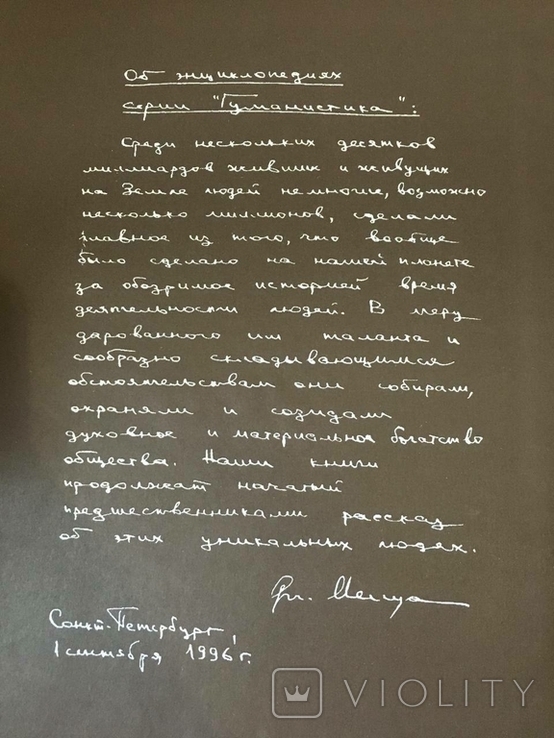 Об энциклопедиях
серии "Гуманистика":
Среди нескольких десятков
миллиардов живших и живущих
на Земле людей немногие, возможно
несколько миллионов, сделали
главное из того, что вообще
было сделано на нашей планете
за обозримое историей время
деятельности людей. В меру
дарованного им таланта и
сообразно складывающимся
обстоятельствам они собирали,
охраняли и созидали
духовное и материальное богатство
общества. Наши книги
продолжат начатый
предшественниками рассказ
об этих уникальных людях.
Санкт-Петербург,
1 сентября 1996 г.
VIOLITY